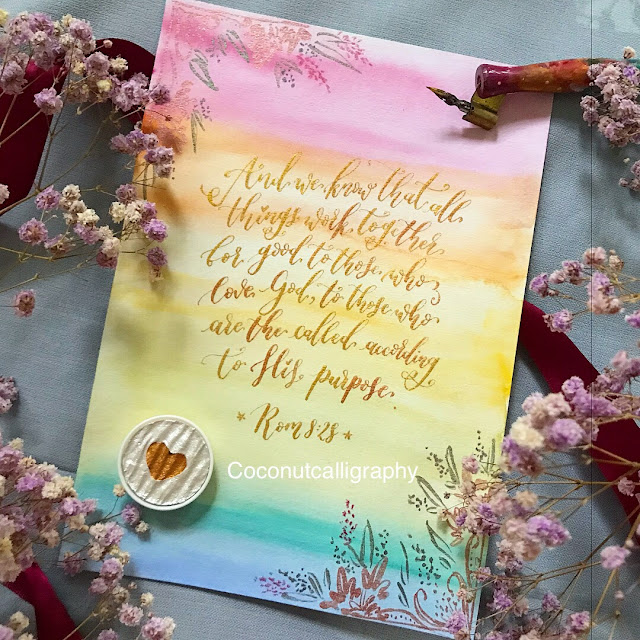 And we know that all
things work together
for good to those who
love God, to those who
are the called according
to His purpose.
* Rom 8:28 *
Coconutcalligraphy